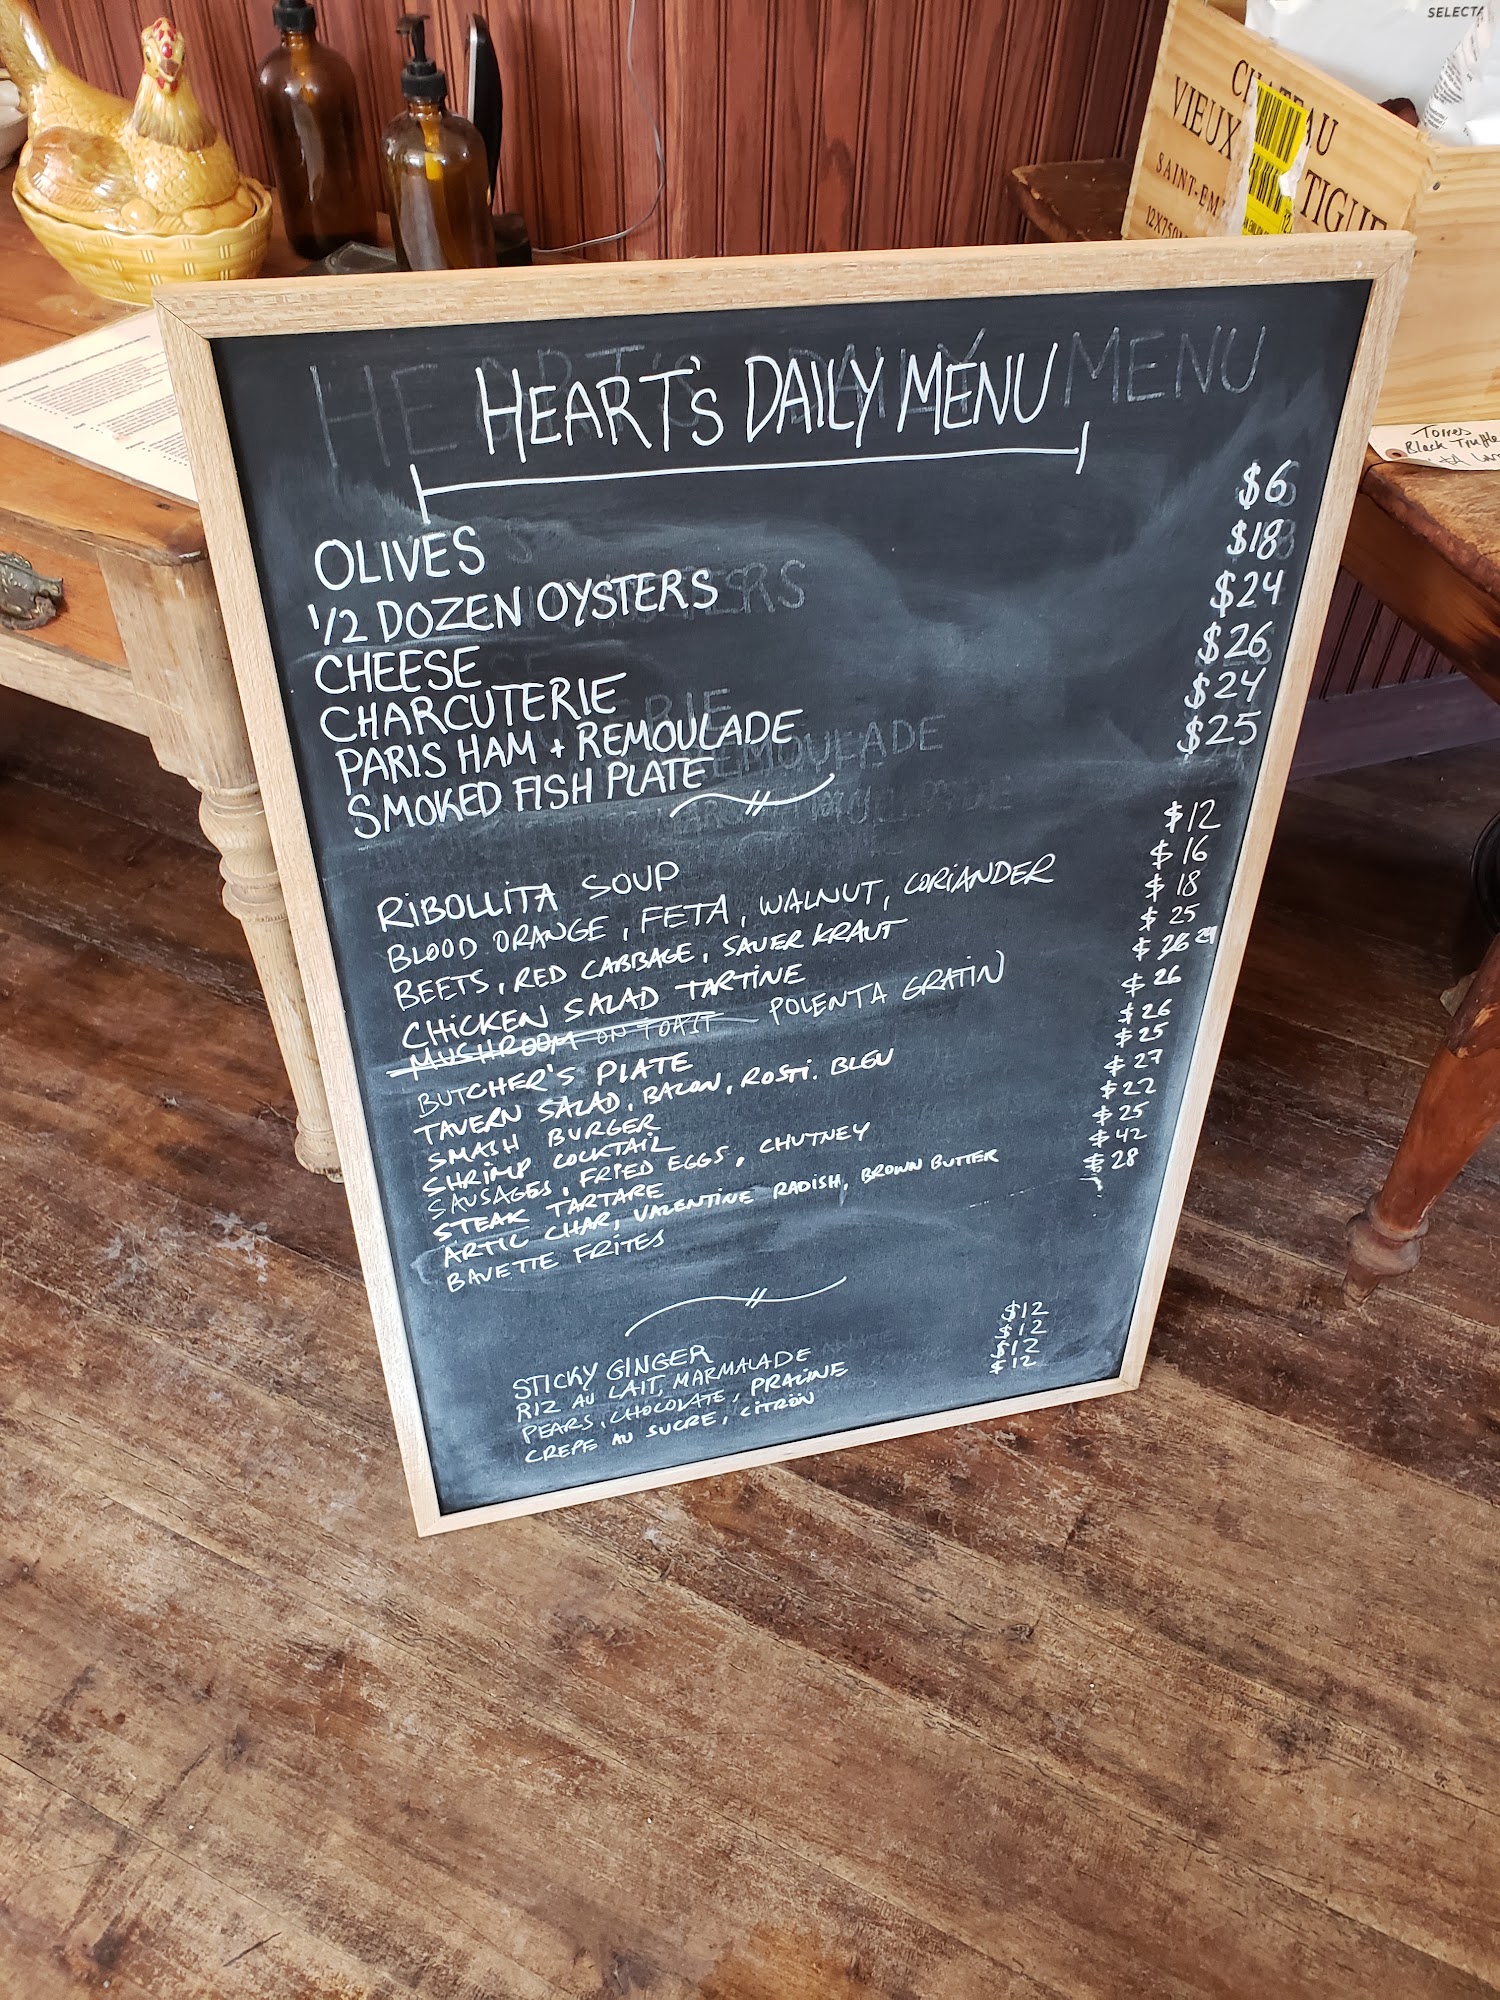 SELECTA
CHATEAU
VIEUX
TIGUE
SAINT-EM
12X750M
Torres
Black Truffle
HEART'S DAILY MENU
OLIVES $6
1/2 DOZEN OYSTERS $18
CHEESE $24
CHARCUTERIE $26
PARIS HAM + REMOULADE $24
SMOKED FISH PLATE $25
RIBOLLITA SOUP $12
BLOOD ORANGE, FETA, WALNUT, CORIANDER $16
BEETS, RED CABBAGE, SAUER KRAUT $18
CHICKEN SALAD TARTINE $25
MUSHROOM ON TOAST POLENTA GRATIN $ 26 24
BUTCHER'S PLATE $26
TAVERN SALAD, BACON, ROSTI. BLEU $26
SMASH BURGER $25
SHRIMP COCKTAIL $27
SAUSAGES, FRIED EGGS, CHUTNEY $22
STEAK TARTARE $25
ARTIC CHAR, VALENTINE RADISH, BROWN BUTTER $42
BAVETTE FRITES $28
STICKY GINGER $12
RIZ AU LAIT, MARMALADE $12
PEARS, CHOCOLATE, PRALINE $12
CREPE AU SUCRE, CITRON $12